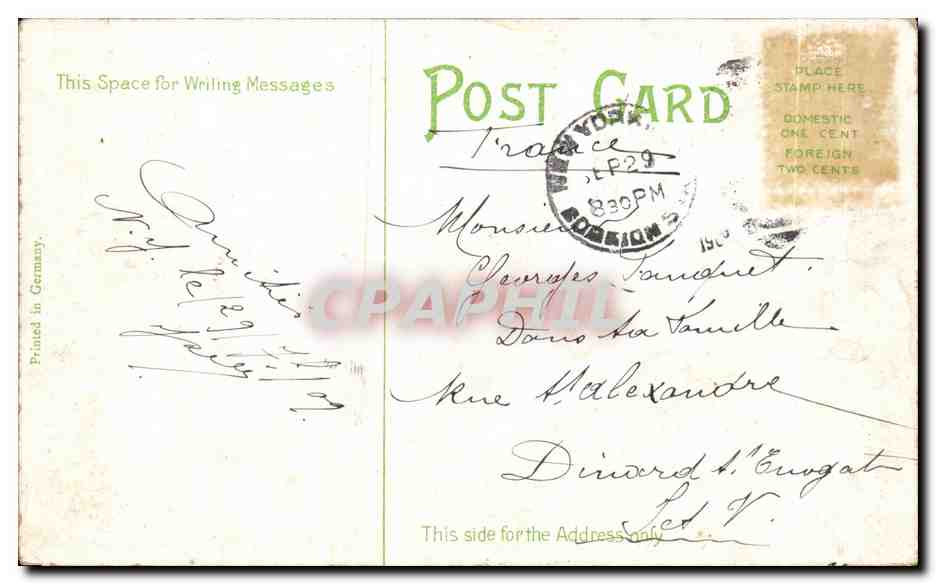 This Space for Writing Messages
POST CARD
PLACE
STAMP HERE
DOMESTIC
ONE CENT
FOREIGN
TWO CENTS
NEW YORK,
SEP 29
830PM
FOREIGN S
190
France
Monsieur
Georges
Dans sa famille
Rue St Alexandre
Dinard St Enogat
I et V.
This side for the Address only
Amitiés
N.Y. le 29
09
Printed in Germany.
CPAPHIL